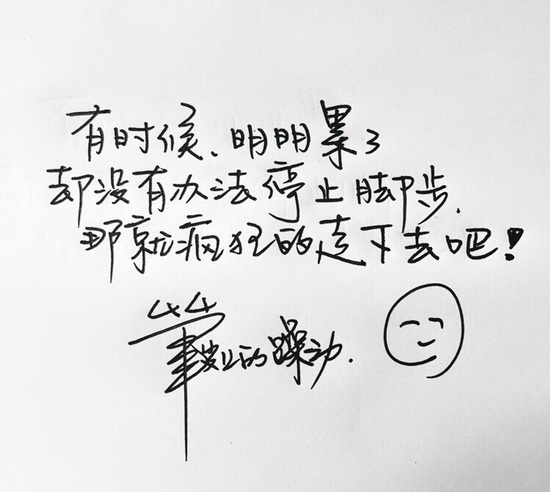 有时候、明明累了
却没有办法停止脚步.
那就疯狂的走下去吧!
笔尖的躁动.